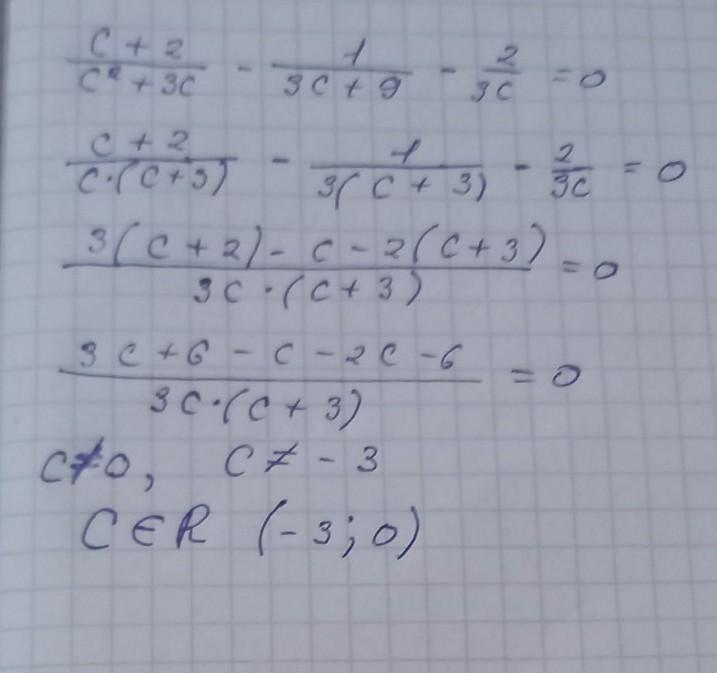 (c + 2)/(c² + 3c) - 1/(3c + 9) - 2/(3c) = 0
(c + 2)/(c·(c+3)) - 1/(3(c + 3)) - 2/(3c) = 0
(3(c + 2) - c - 2(c + 3))/(3c·(c + 3)) = 0
(3c + 6 - c - 2c - 6)/(3c·(c + 3)) = 0
c≠0, c ≠ - 3
C ∈ R (-3; 0)